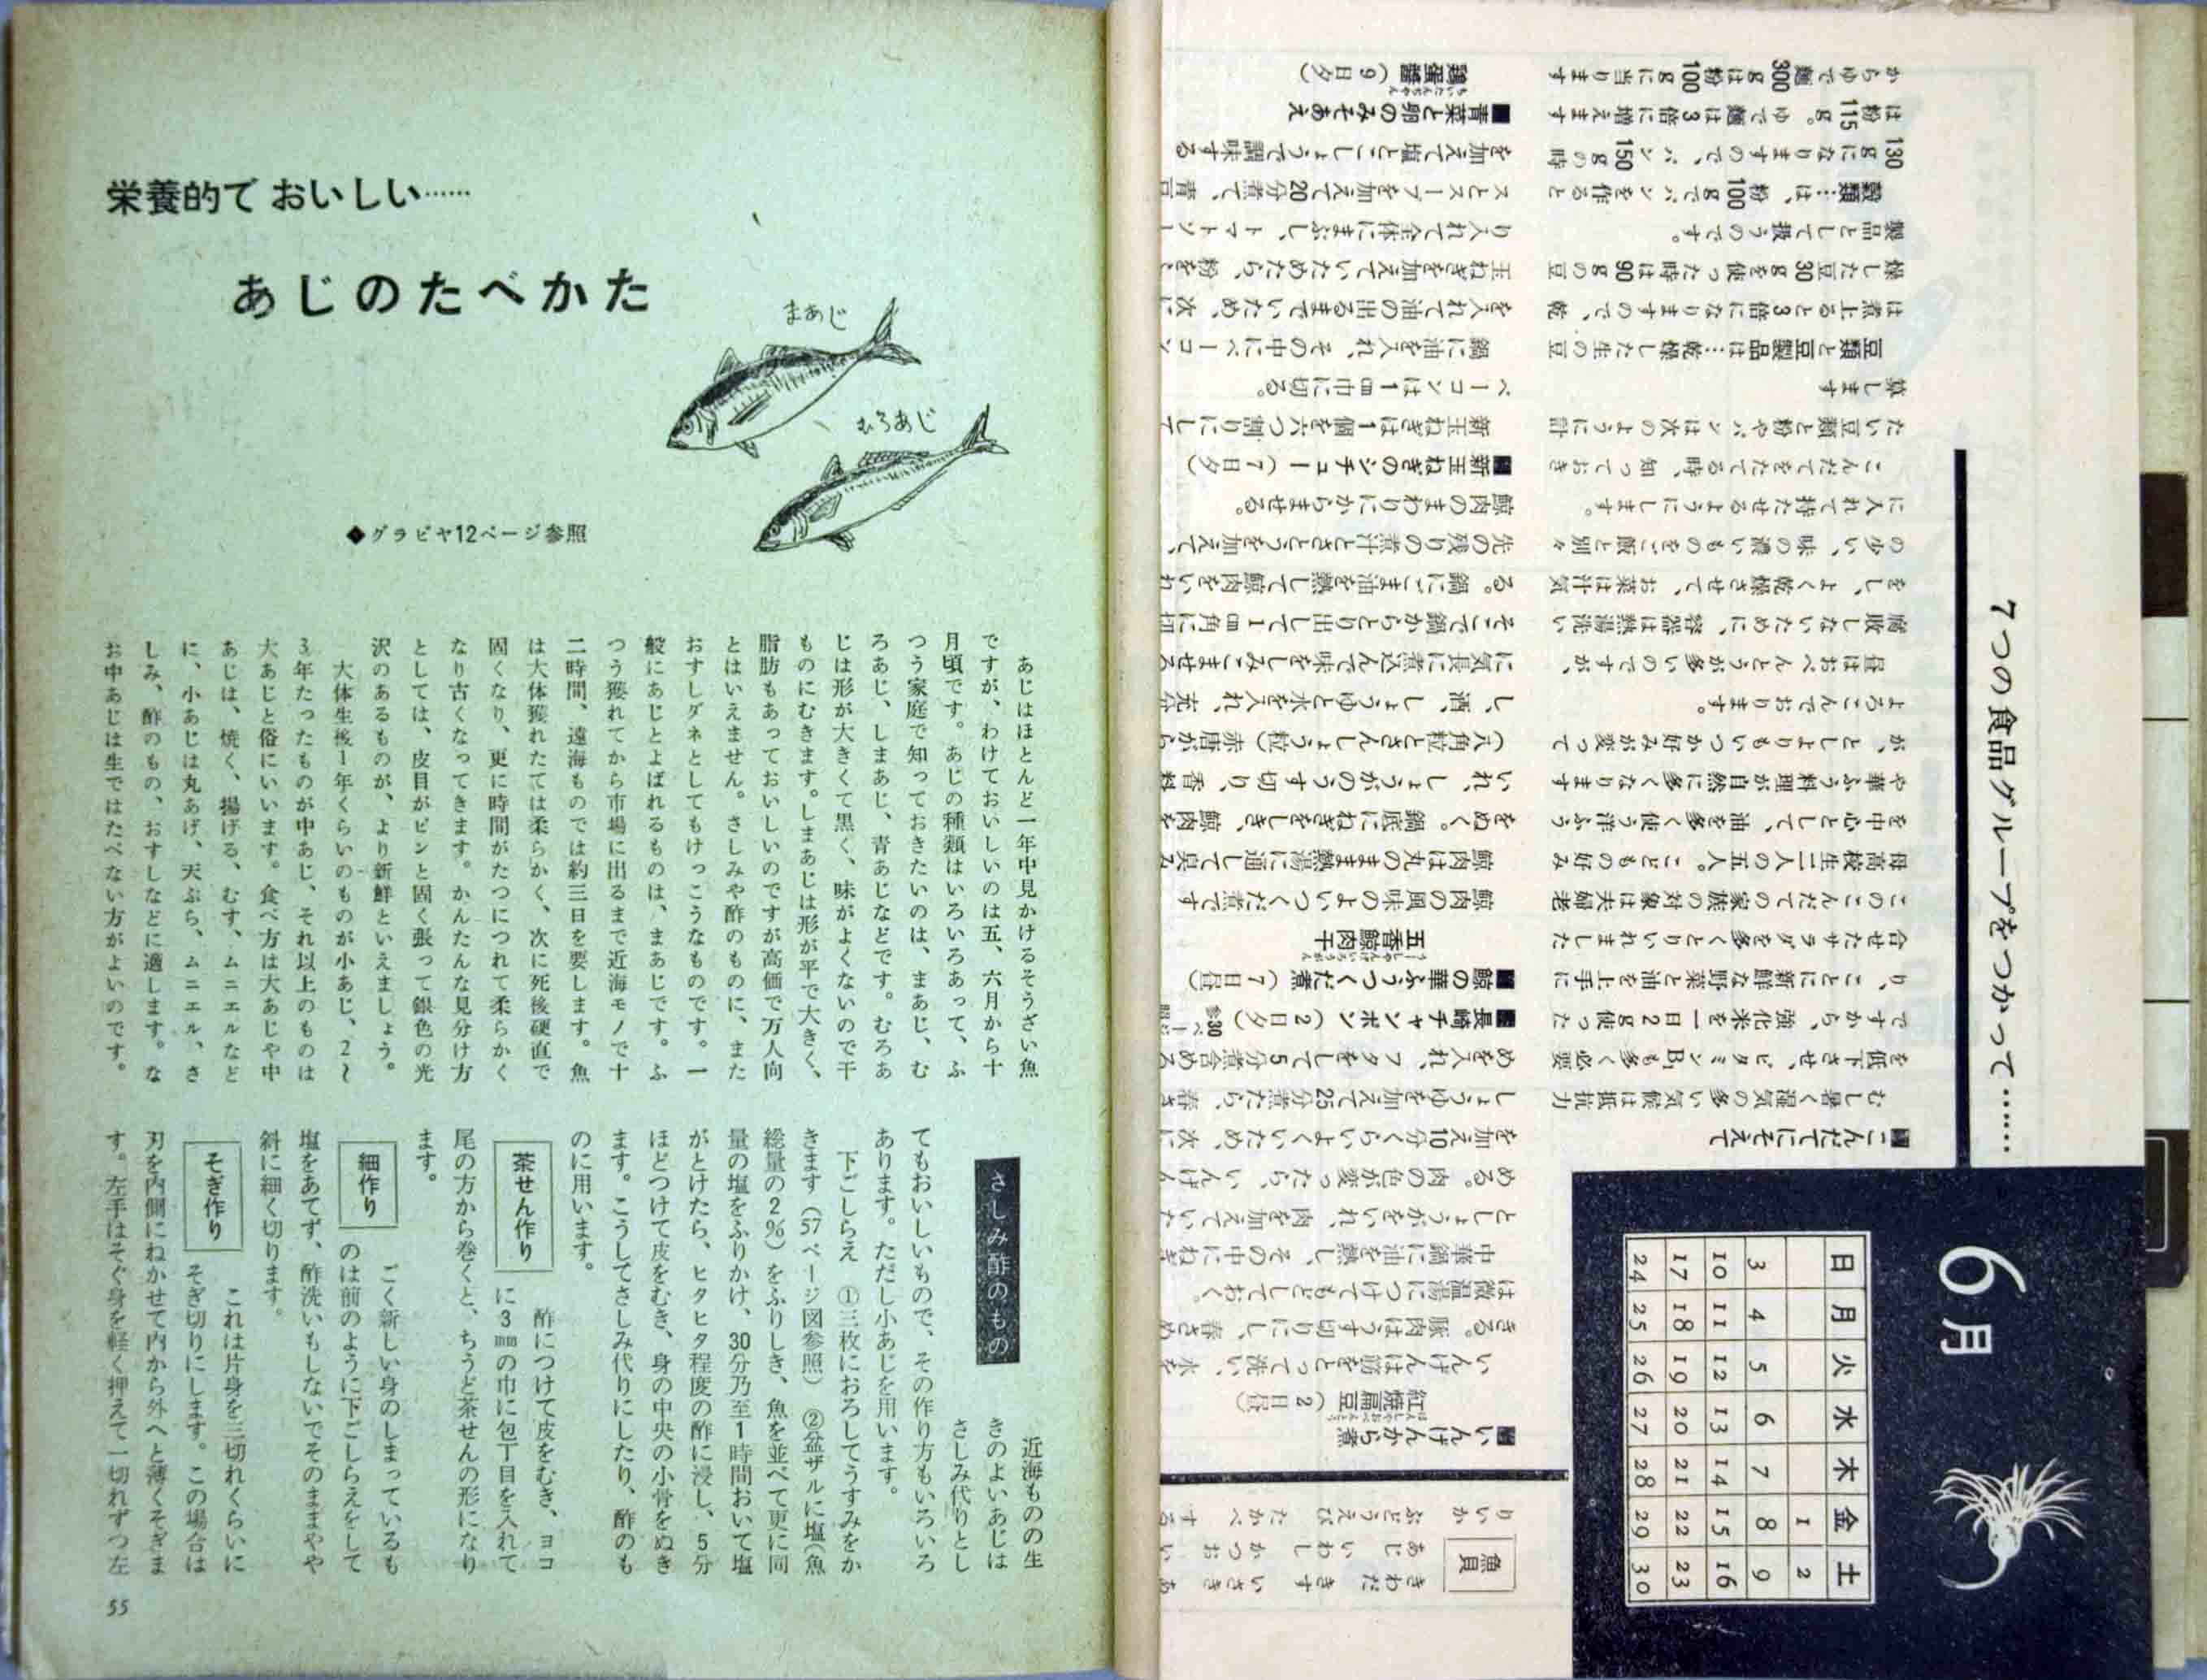 栄養的で おいしい……
あじのたべかた
まあじ
むろあじ
◆グラビヤ12ページ参照
あじはほとんど一年中見かけるそうざい魚
ですが、わけておいしいのは五、六月から十
月頃です。あじの種類はいろいろあって、ふ
つう家庭で知っておきたいのは、まあじ、む
ろあじ、しまあじ、青あじなどです。むろあ
じは形が大きくて黒く、味がよくないので干
ものにむきます。しまあじは形が平で大きく、
脂肪もあっておいしいのですが高価で万人向
とはいえません。さしみや酢のものに、また
おすしダネとしてもけっこうなものです。一
般にあじとよばれるものは、まあじです。ふ
つう獲れてから市場に出るまで近海モノで十
二時間、遠海ものでは約三日を要します。魚
は大体獲れたては柔らかく、次に死後硬直で
固くなり、更に時間がたつにつれて柔らかく
なり古くなってきます。かんたんな見分け方
としては、皮目がピンと固く張って銀色の光
沢のあるものが、より新鮮といえましょう。
大体生後1年くらいのものが小あじ、2〜
3年たったものが中あじ、それ以上のものは
大あじと俗にいいます。食べ方は大あじや中
あじは、焼く、揚げる、むす、ムニエルなど
に、小あじは丸あげ、天ぷら、ムニエル、さ
しみ、酢のもの、おすしなどに適します。な
お中あじは生ではたべない方がよいのです。
さしみ酢のもの
近海ものの生
きのよいあじは
さしみ代りとし
てもおいしいもので、その作り方もいろいろ
あります。ただし小あじを用います。
下ごしらえ ①三枚におろしてうすみをか
きます（57ページ図参照） ②盆ザルに塩（魚
総量の2％）をふりしき、魚を並べて更に同
量の塩をふりかけ、30分乃至1時間おいて塩
がとけたら、ヒタヒタ程度の酢に浸し、5分
ほどつけて皮をむき、身の中央の小骨をぬき
ます。こうしてさしみ代りにしたり、酢のも
のに用います。
茶せん作り
酢につけて皮をむき、ヨコ
に3㎜の巾に包丁目を入れて
尾の方から巻くと、ちうど茶せんの形になり
ます。
細作り
ごく新しい身のしまっているも
のは前のように下ごしらえをして
塩をあてず、酢洗いもしないでそのままやや
斜に細く切ります。
そぎ作り
これは片身を三切れくらいに
そぎ切りにします。この場合は
刃を内側にねかせて内から外へと薄くそぎま
す。左手はそぐ身を軽く押えて一切れずつ左
55
6月
日 月 火 水 木 金 土
1 2
3 4 5 6 7 8 9
10 11 12 13 14 15 16
17 18 19 20 21 22 23
24 25 26 27 28 29 30
7つの食品グループをつかって……
■こんだてにそえて
むし暑く湿気の多い気候は抵抗力
を低下させ、ビタミンB₁も多く必要
ですから、強化米を一日2g使った
り、ことに新鮮な野菜と油を上手に
合せたサラダを多くとりいれました
このこんだての家族の対象は夫婦老
母高校生二人の五人。こどもの好み
を中心として、油を多く使う洋ふう
や華ふう料理が自然に多くなります
が、としよりもいつか好みが変って
よろこんでおります。
昼はおべんとうが多いのですが、
腐敗しないために、容器は熱湯洗い
をし、よく乾燥させて、お菜は汁気
の少い、味の濃いものをご飯と別々
に入れて持たせるようにします。
こんだてをたてる時、知っておき
たい豆類と粉やパンは次のように計
算します
豆類と豆製品は…乾燥した生の豆
は煮上ると3倍になりますので、乾
燥した豆30gを使った時は90gの豆
製品として扱うのです。
穀類…は、粉100gでパンを作ると
130gになりますので、パン150gの時
は粉115g。ゆで麺は3倍に増えます
からゆで麺300gは粉100gに当ります
魚貝
きわだ きす いさき
あじ いわし かつお
ぶどうえび たかべ
りいか
■いんげんから煮
紅焼扁豆（2日昼）
いんげんは筋をとって洗い、水を
きる。豚肉はうす切りにし、春さめ
は微温湯につけてもどしておく。
中華鍋に油を熱し、その中にねぎ
としょうがをいれ、肉を加えていた
める。肉の色が変ったら、いんげん
を加え10分くらいよくいため、次に
しょうゆを加えて25分煮たら、春さ
めを入れ、フタをして5分煮含める
■長崎チャンポン（2日夕）
■鯨の華ふうつくだ煮（7日昼）
五香鯨肉干
鯨肉の風味のよいつくだ煮です
鯨肉は丸のまま熱湯に通して臭み
をぬく。鍋底にねぎをしき、鯨肉を
いれ、しょうがのうす切り、香料
（八角粒とさんしょう粒）赤唐から
し、酒、しょうゆと水を入れ、充分
に気長に煮込んで味をしみこませる
そこで鍋からとり出して1㎝角に切
る。鍋にごま油を熱して鯨肉をいれ
先の残りの煮汁とさとうを加えて、
鯨肉のまわりにからませる。
■新玉ねぎのシチュー（7日夕）
新玉ねぎは1個を六つ割りにして
ベーコンは1㎝巾に切る。
鍋に油を入れ、その中にベーコン
を入れて油の出るまでいため、次に
玉ねぎを加えていためたら、粉をふ
り入れて全体にまぶし、トマトソー
スとスープを加えて20分煮て、青豆
を加えて塩とこしょうで調味する
■青菜と卵のみそあえ
鶏蛋醬（9日夕）